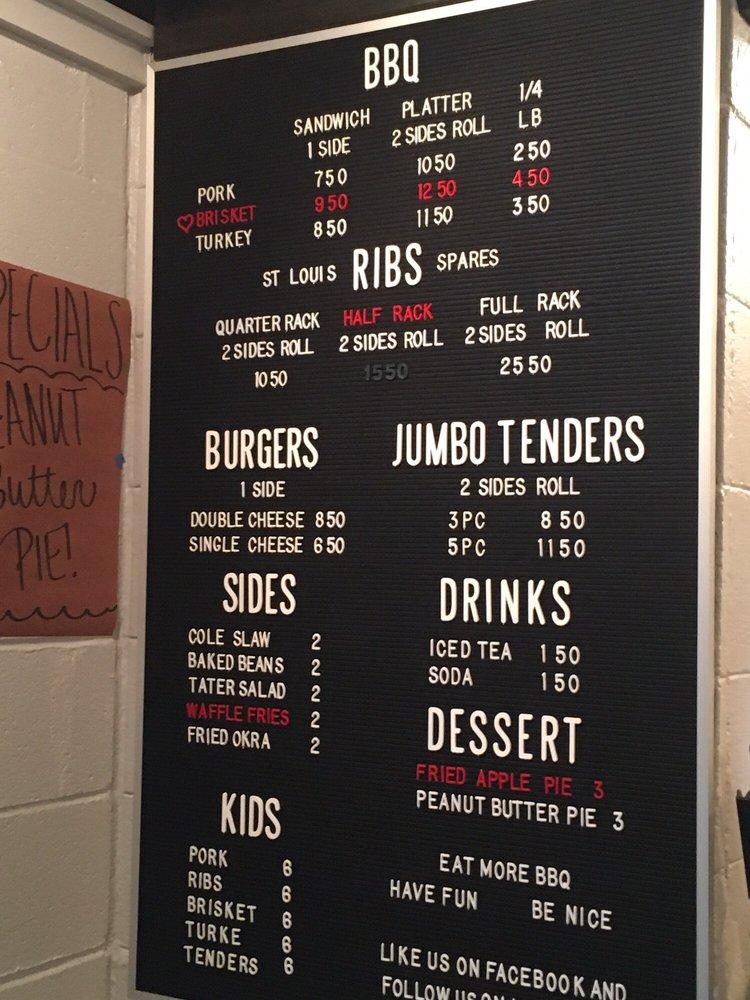 BBQ
SANDWICH PLATTER 1/4
1 SIDE 2 SIDES ROLL LB
PORK 750 1050 250
BRISKET 950 1250 450
TURKEY 850 1150 350
ST LOUIS RIBS SPARES
QUARTER RACK HALF RACK FULL RACK
2 SIDES ROLL 2 SIDES ROLL 2 SIDES ROLL
1050 1550 2550
BURGERS
1 SIDE
DOUBLE CHEESE 850
SINGLE CHEESE 650
JUMBO TENDERS
2 SIDES ROLL
3PC 850
5PC 1150
SIDES
COLE SLAW 2
BAKED BEANS 2
TATER SALAD 2
WAFFLE FRIES 2
FRIED OKRA 2
DRINKS
ICED TEA 150
SODA 150
DESSERT
FRIED APPLE PIE 3
PEANUT BUTTER PIE 3
KIDS
PORK 6
RIBS 6
BRISKET 6
TURKE 6
TENDERS 6
EAT MORE BBQ
HAVE FUN BE NICE
LIKE US ON FACEBOOK AND
FOLLOW US ON
PECIALS
EANUT
Butter
PIE!